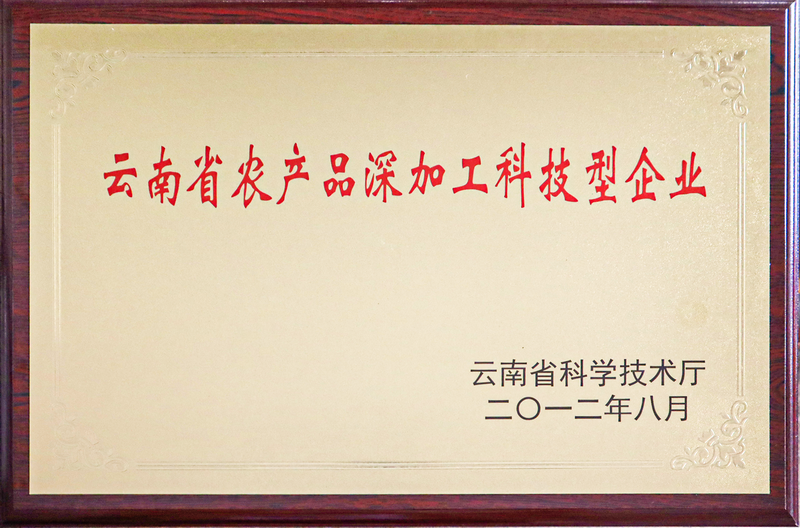 云南省农产品深加工科技型企业
云南省科学技术厅
二〇一二年八月